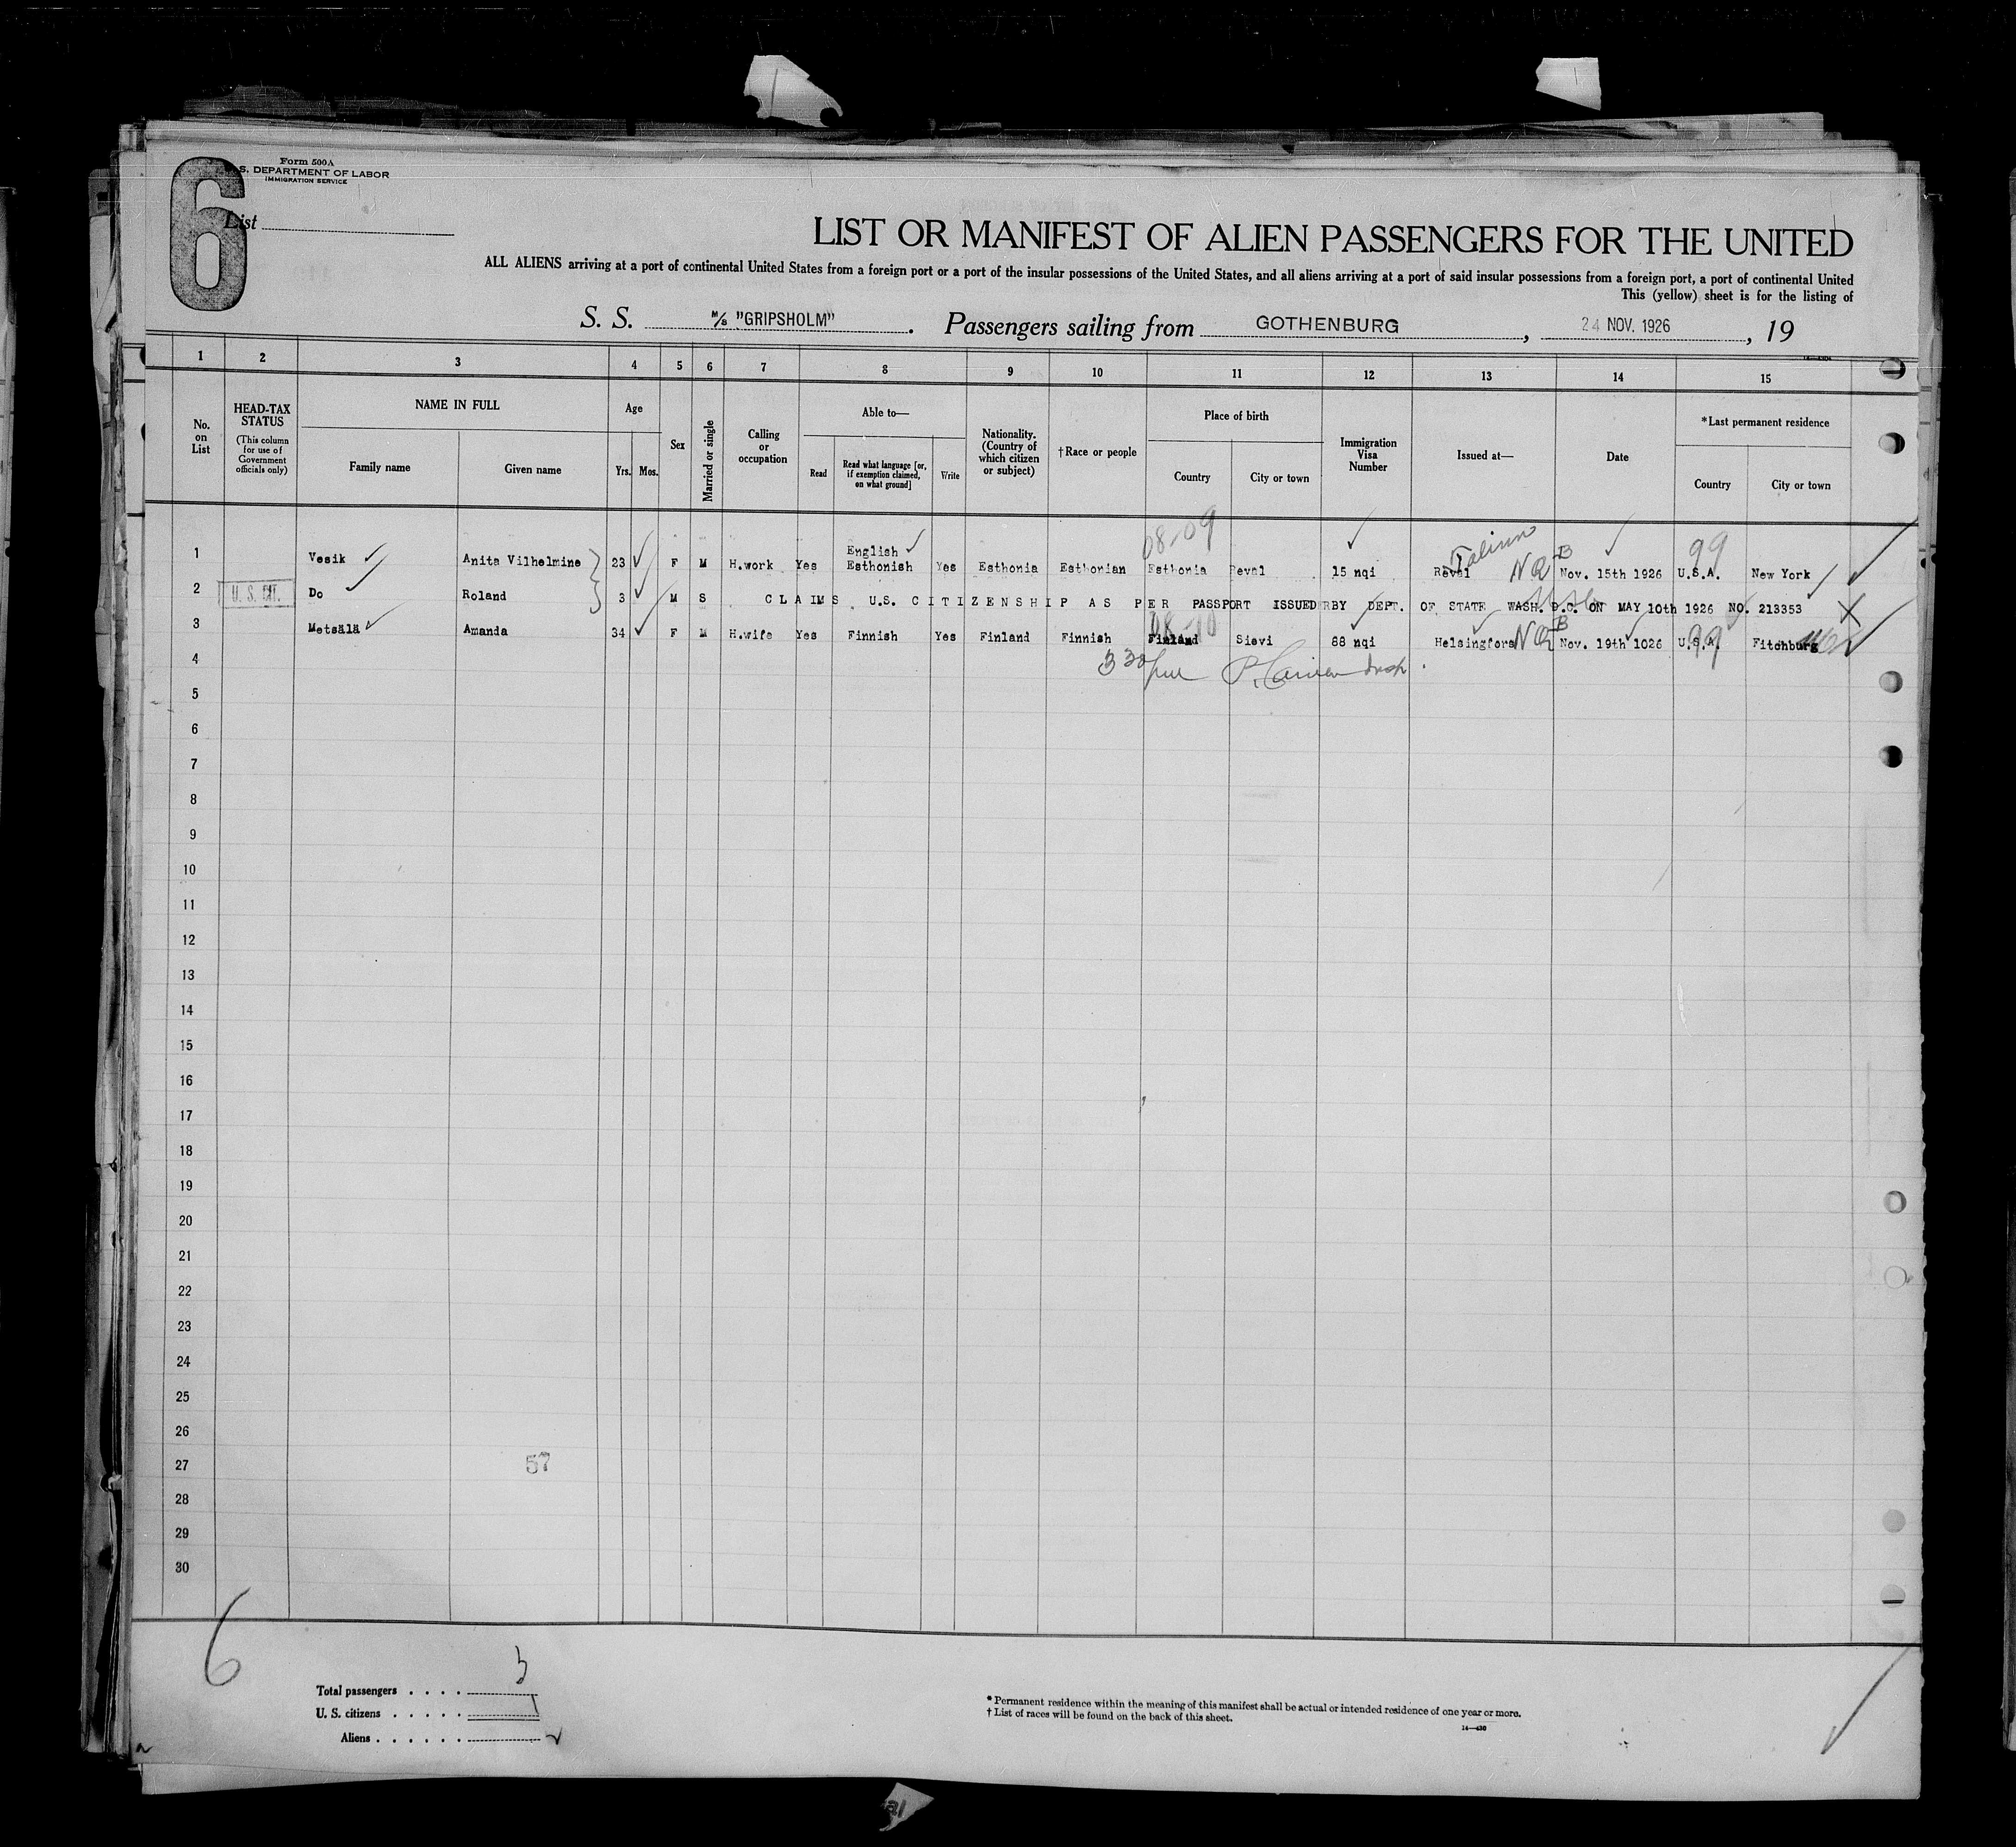 6
Form 500A
S. DEPARTMENT OF LABOR
IMMIGRATION SERVICE
List
LIST OR MANIFEST OF ALIEN PASSENGERS FOR THE UNITED
ALL ALIENS arriving at a port of continental United States from a foreign port or a port of the insular possessions of the United States, and all aliens arriving at a port of said insular possessions from a foreign port, a port of continental United
This (yellow) sheet is for the listing of
S. S. M/S "GRIPSHOLM". Passengers sailing from GOTHENBURG, 24 NOV. 1926, 19
1 2 3 4 5 6 7 8 9 10 11 12 13 14 15
No. on List
HEAD-TAX STATUS (This column for use of Government officials only)
NAME IN FULL
Family name Given name
Age
Yrs. Mos.
Sex
Married or single
Calling or occupation
Able to—
Read Read what language [or, if exemption claimed, on what ground] Write
Nationality. (Country of which citizen or subject)
†Race or people
Place of birth
Country City or town
Immigration Visa Number
Issued at—
Date
*Last permanent residence
Country City or town
08-09 Talinn B 99
English
1 Vesik Anita Vilhelmine 23 F M H.work Yes Esthonish Yes Esthonia Esthonian Esthonia Reval 15 nqi Reval NQ Nov. 15th 1926 U.S.A. New York
2 U. S. CIT. Do Roland 3 M S CLAIMS U.S. CITIZENSHIP AS PER PASSPORT ISSUED BY DEPT. OF STATE WASH. D.C. ON MAY 10th 1926 NO. 213353
3 Metsälä Amanda 34 F M H.wife Yes Finnish Yes Finland Finnish Finland Sievi 88 nqi Helsingfors NQ B Nov. 19th 1026 U.S.A. 99 Fitchburg
4
5
6
7
8
9
10
11
12
13
14
15
16
17
18
19
20
21
22
23
24
25
26
27 57
28
29
30
6
Total passengers . . . . 3
U. S. citizens . . . . . 1
Aliens . . . . . . 2
* Permanent residence within the meaning of this manifest shall be actual or intended residence of one year or more.
† List of races will be found on the back of this sheet.
14—430